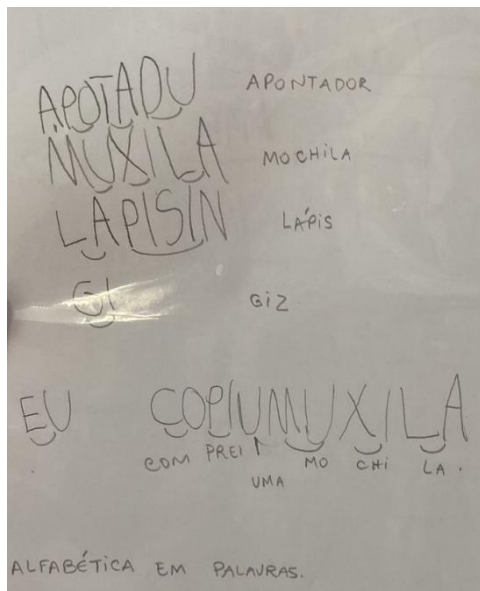 APOTADU APONTADOR
MUXILA MOCHILA
LAPISIN LÁPIS
GI GIZ
EU COPIUMUXILA
COM PREI UMA MO CHI LA.
ALFABÉTICA EM PALAVRAS.